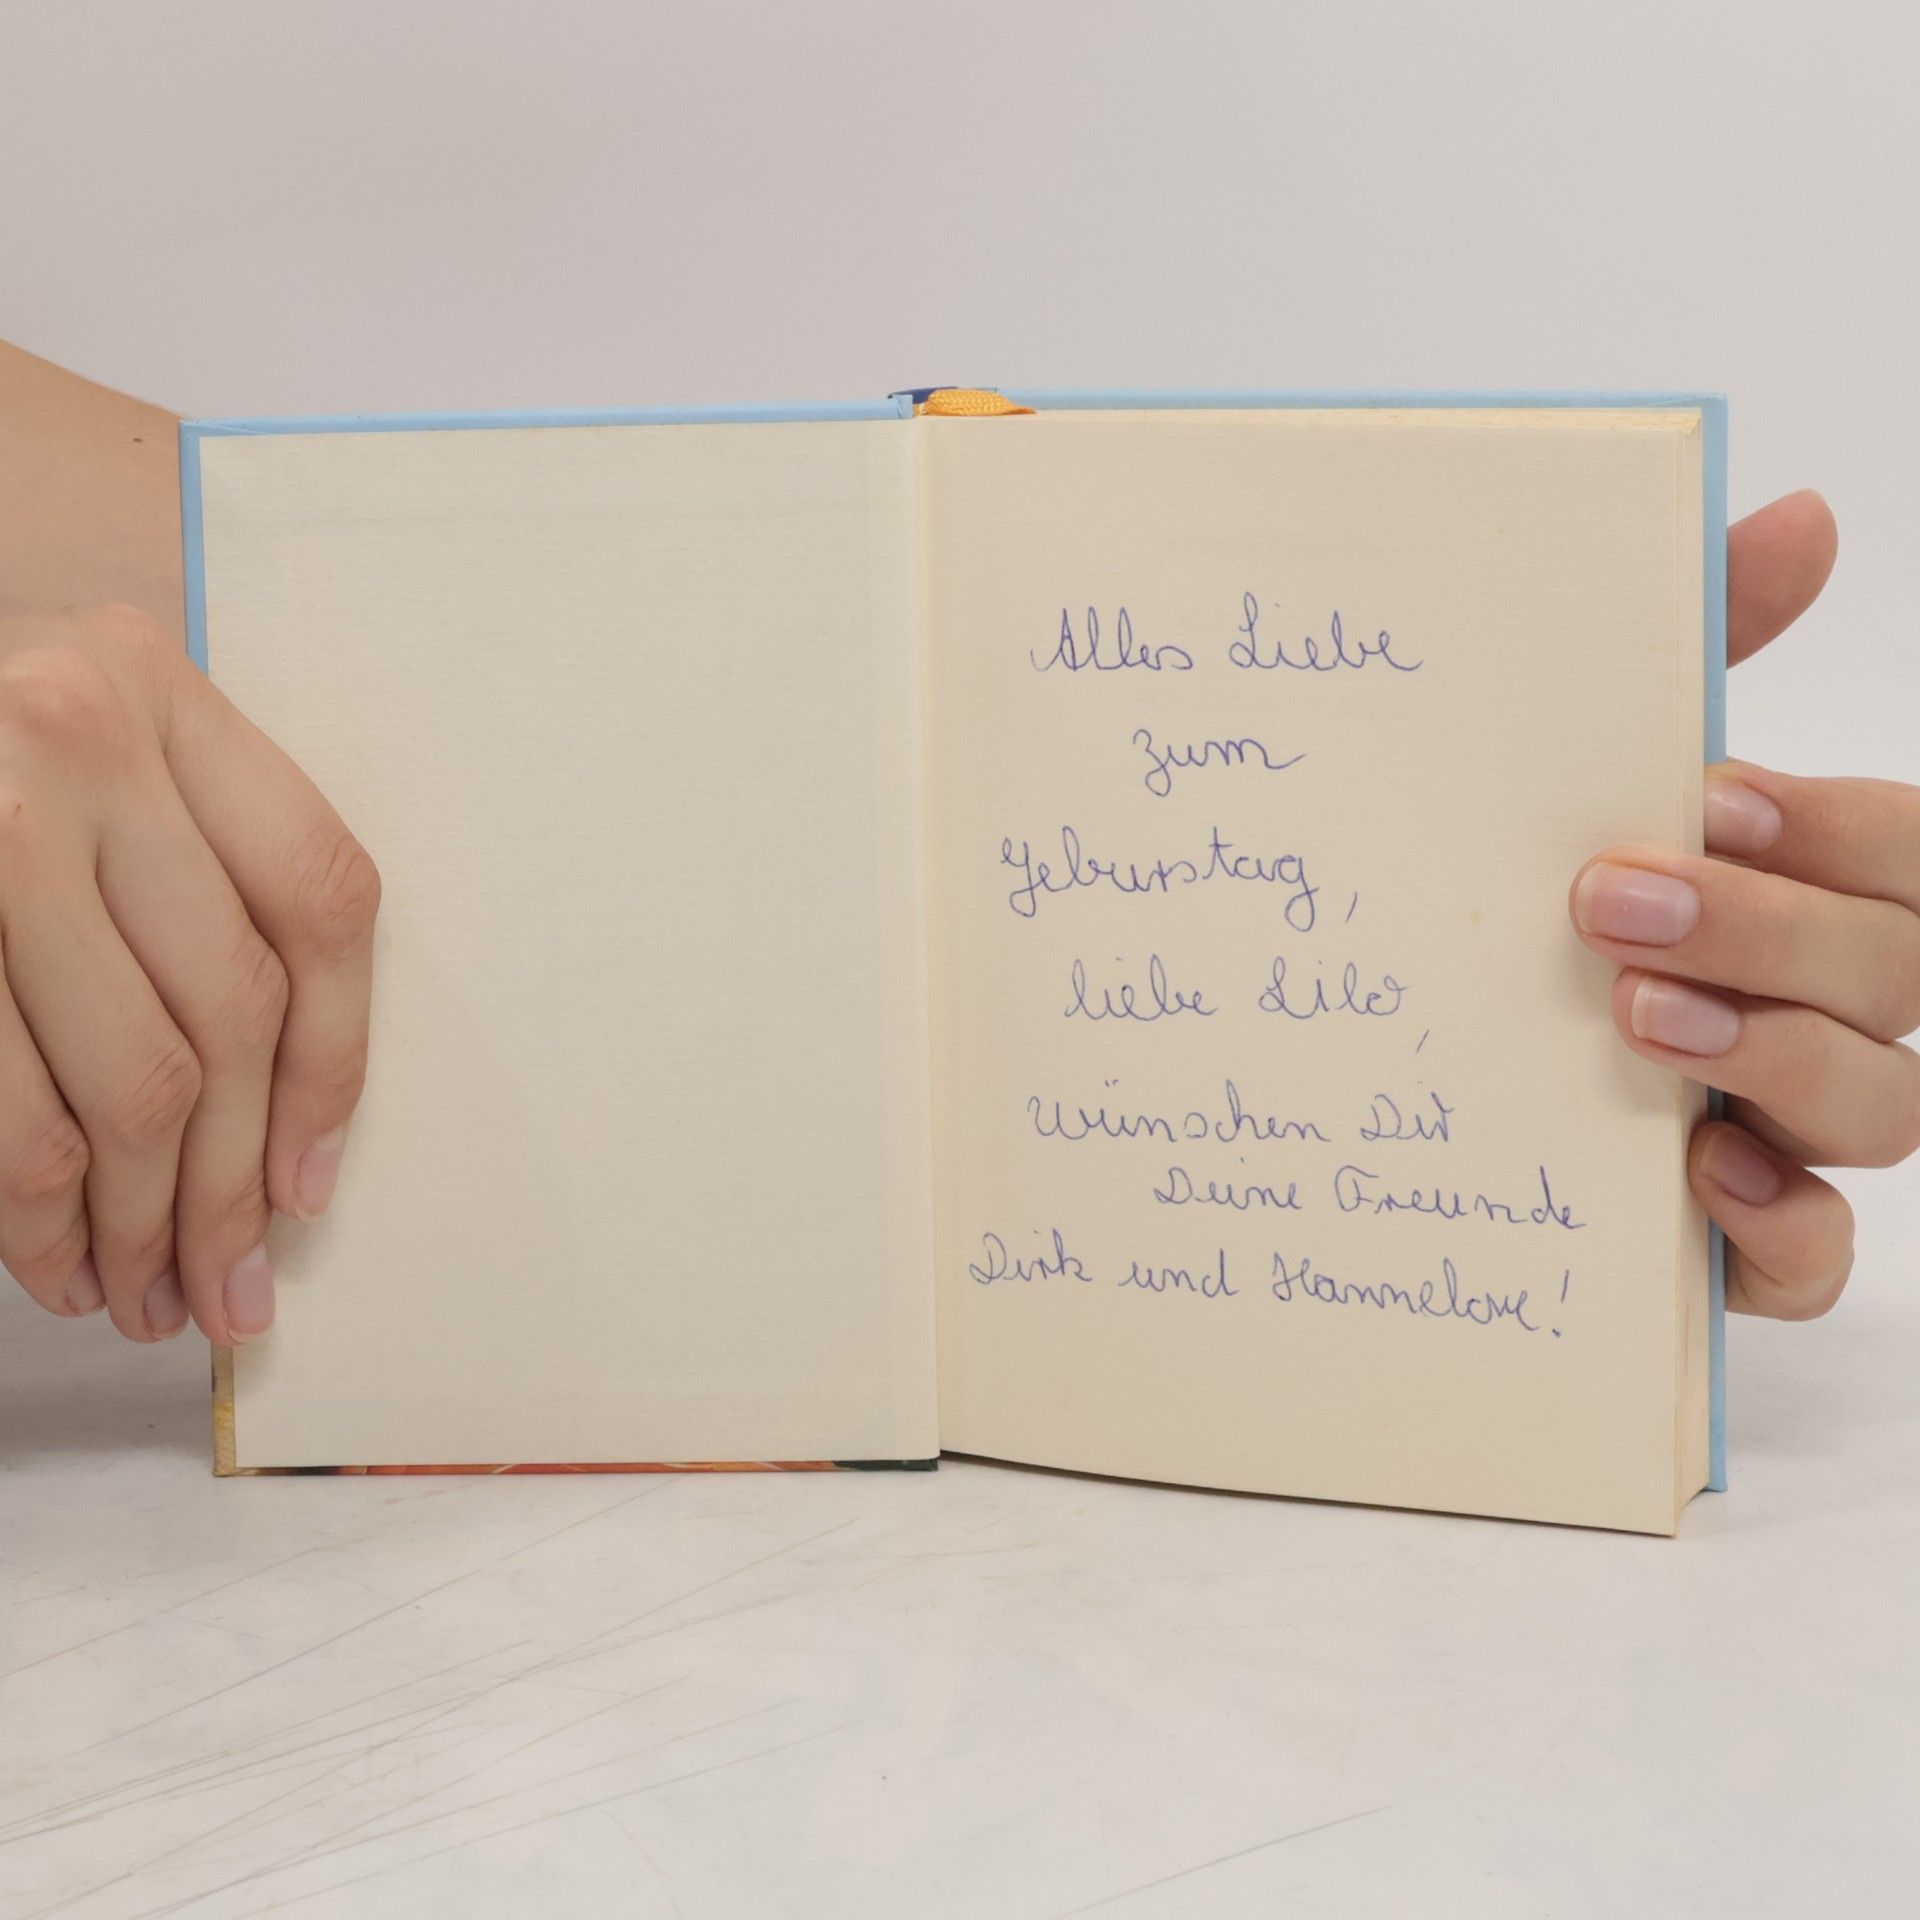 Alles Liebe
zum
Geburstag,
liebe Lilo,
wünschen Dir
Deine Freunde
Dirk und Hannelore!